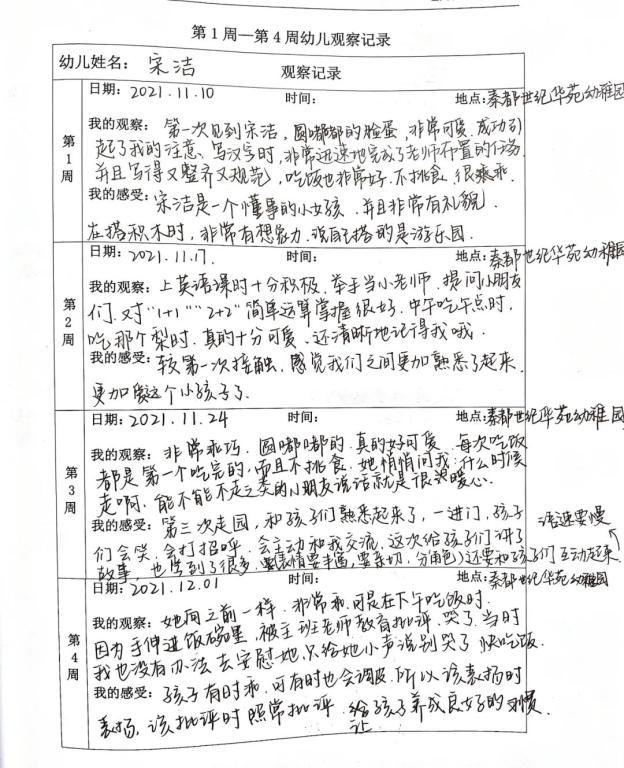 第1周—第4周幼儿观察记录
幼儿姓名：宋洁 观察记录
第1周
日期：2021.11.10 时间： 地点：秦都世纪华苑幼稚园
我的观察：第一次见到宋洁，圆嘟嘟的脸蛋，非常可爱.成功引
起了我的注意、写汉字时，非常迅速地完成了老师布置的任务.
并且写得又整齐又规范，吃饭也非常好.不挑食.很乖乖.
我的感受：宋洁是一个懂事的小女孩.并且非常有礼貌，
在搭积木时，非常有想象力.说自己搭的是游乐园.
第2周
日期：2021.11.17. 时间： 地点：秦都世纪华苑幼稚园
我的观察：上英语课时十分积极.举手当小老师.提问小朋友
们.对“1+1”“2+2”简单运算掌握很好.中午吃午点时，
吃那个梨时.真的十分可爱.还清晰地记得我哦.
我的感受：较第一次接触.感觉我们之间更加熟悉了起来.
更加爱这个小孩子了.
第3周
日期：2021.11.24 时间： 地点：秦都世纪华苑幼稚园
我的观察：非常乖巧.圆嘟嘟的.真的好可爱.每次吃饭
都是第一个吃完的，而且不挑食.她悄悄问我：什么时候
走啊.能不能不走之类的小朋友说话就是很暖心.
我的感受：第三次走园，和孩子们熟悉起来了，一进门，孩子
们会笑.会打招呼.会主动和我交流.这次给孩子们讲了
故事，也学到了很多（表情要丰富，要亲切.分角色）还要和孩子们互动起来.
语速要慢
第4周
日期：2021.12.01 时间： 地点：秦都世纪华苑幼稚园
我的观察：她同之前一样.非常乖.可是在下午吃饭时.
因为手伸进饭碗里.被主班老师教育批评.哭了.当时
我也没有办法去安慰她.只给她小声说别哭了.快吃饭.
我的感受：孩子有时乖.可有时也会调皮.所以该表扬时
表扬，该批评时照常批评.给孩子养成良好的习惯.
让